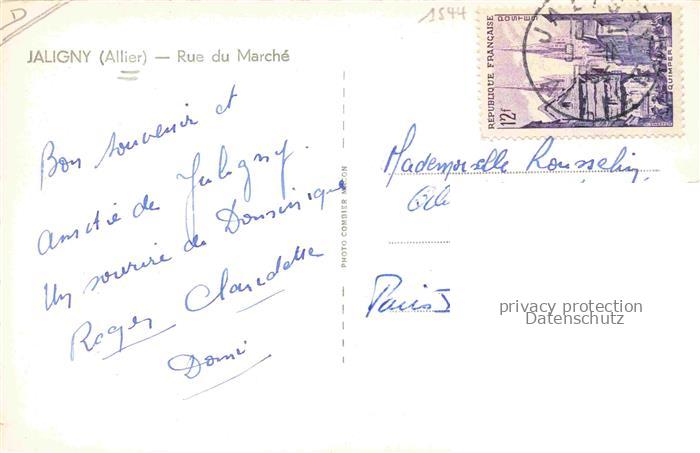 D
1544
JALIGNY (Allier) — Rue du Marché
RÉPUBLIQUE FRANÇAISE
POSTES
12F
QUIMPER
Bon souvenir et
amitié de Jaligny.
Un sourire de Dominique
Roger Claudette
Domi
PHOTO COMBIER MACON
Mademoiselle Rousselin
Paris
privacy protection
Datenschutz